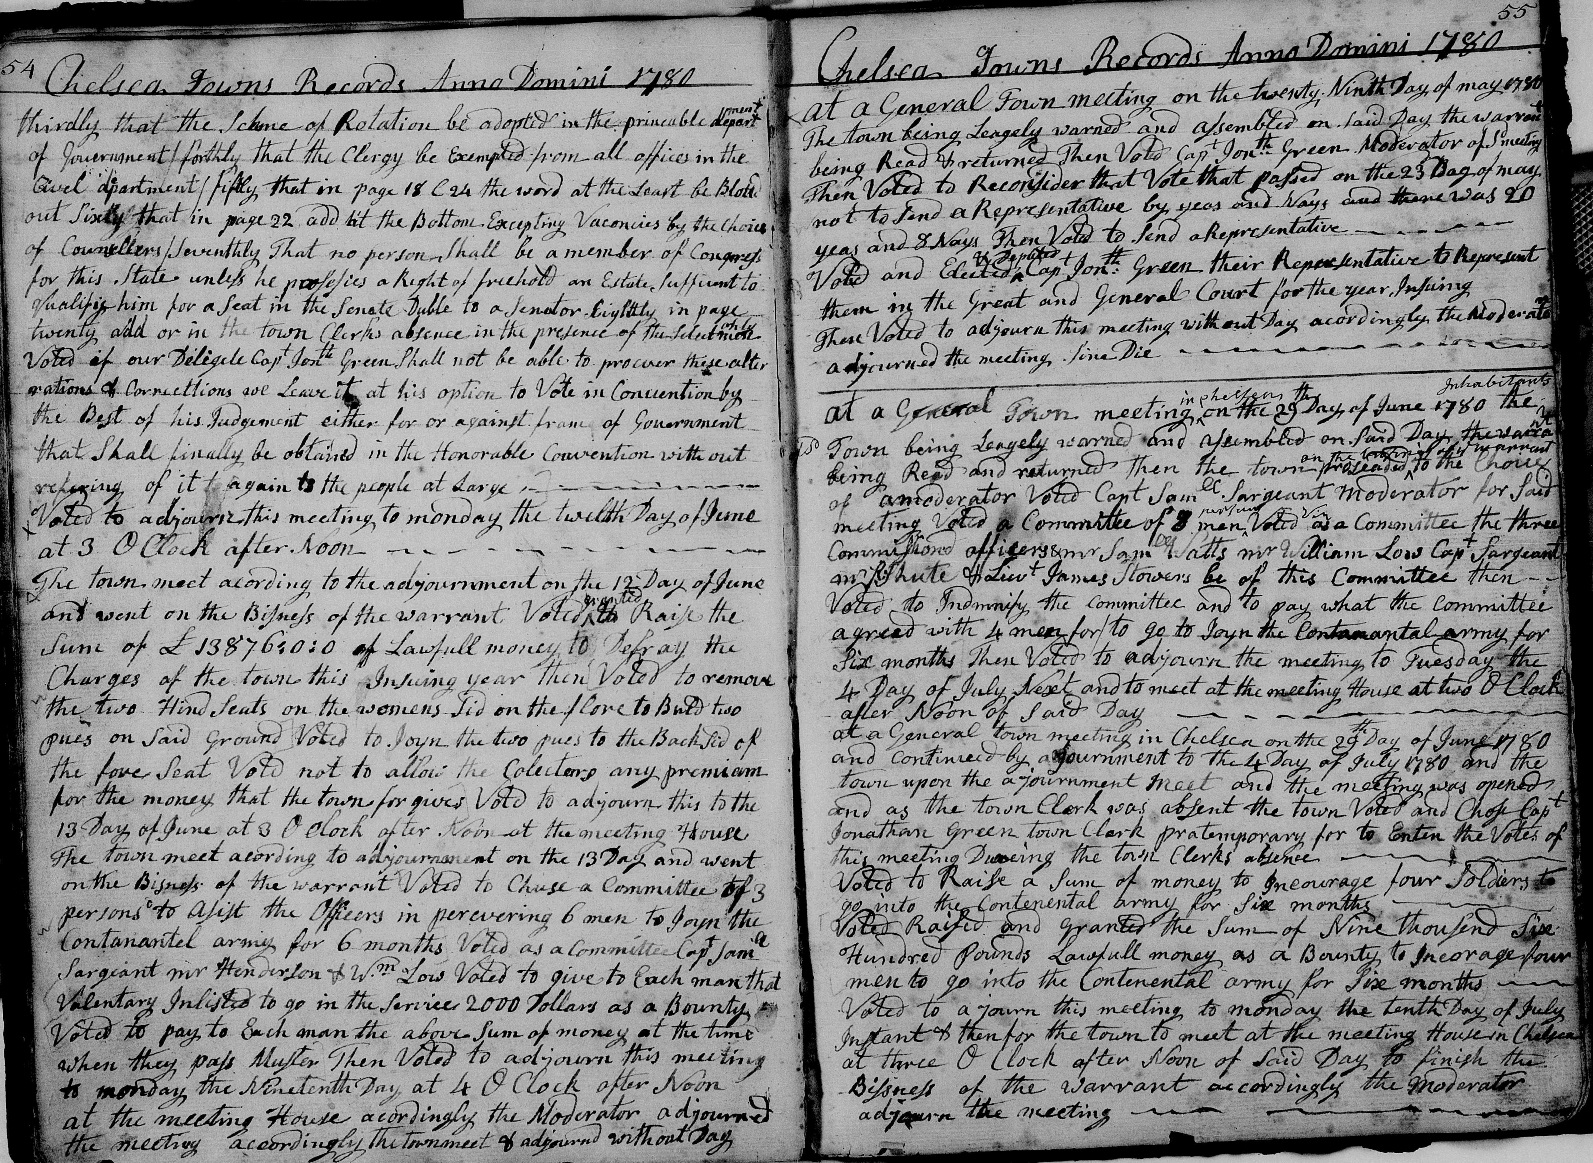 54 Chelsea Towns Records Anno Domini 1780
thirdly that the Scheme of Rotation be adopted in the princable depart ment
of Government/forthly that the Clergy be Exempted from all offices in the
Civel dpartment/fiftly that in page 18 & 24 the word at the Least be Blotd
out Sixtly that in page 22 add at the Bottom Excepting Vacancies by the Choice
of Counsellers/Seventhly That no person Shall be a member of Congress
for this State unless he prossesses a Right of freehold an Estate Suffitient to
Qualifiy him for a Seat in the Senate Duble to a Senator Eighthly in page
twenty add or in the town Clerks absence in the presence of the Selectmen
Voted if our Delegele Capt Jonth Green Shall not be able to procuer these alter
rations & Corrections we Leave it at his option to Vote in Convention by
the Best of his Judgement either for or against fram of Government
that Shall finally be obtained in the Honorable Convention with out
refering of it again to the people at Large
Voted to adjourn this meeting to monday the twelth Day of June
at 3 O Clock after Noon
The town meet acording to the adjournment on the 12 Day of June
and went on the Bisness of the warrant Voted granted to Raise the
Sum of £ 13876:0:0 of Lawfull money to Defray the
Charges of the town this Insuing year then Voted to remove
the two Hind Seats on the womens Sid on the flore to Buld two
pues on Said Ground Voted to Joyn the two pues to the Back Sid of
the fore Seat Votd not to allow the Colectors any premiam
for the money that the town forgives Votd to adjourn this to the
13 Day of June at 3 O Clock after Noon at the meeting House
The town meet acording to adjournment on the 13 Day and went
on the Bisness of the warrant Voted to Chuse a Committee of 3
persons to Asist the Officers in percvering 6 men to Joyn the
Contanantel army for 6 months Voted as a Committee Capt Saml
Sargeant mr Henderson & Wm Low Voted to give to Each man that
Valentary Inlisted to go in the Service 2000 Dollars as a Bounty
Voted to pay to Each man the above Sum of money at the time
when they pass Muster Then Voted to adjourn this meeting
to monday the Ninetenth Day at 4 O Clock after Noon
at the meeting House acordingly the Moderator adjourned
the meeting accordingly the town meet & adjournd without Day
55
Chelsea Towns Records Anno Domini 1780
at a General Town meeting on the twenty Ninth Day of may 1780
The town being Leagely warned and assembled on Said Day the warrant
being Read & returned Then Voted Capt Jonth Green Moderator of Sd meeting
Then Voted to Reconsider that Vote that passed on the 23 Day of may
not to Send a Representative by yeas and Nays and there was 20
yeas and 8 Nays Then Voted to Send a Representative
Voted and Elected & Deputed Capt Jonth Green their Representative to Represent
them in the Great and General Court for the year Insuing
Then Voted to adjourn this meeting without Day acordingly the Moderator
adjourned the meeting Sine Die
at a General Town meeting in Chelsea on the 29th Day of June 1780 the Inhabitants
Town being Leagely warned and assembled on Said Day the warrant
being Read and returned then the town proseaded to the Choice
of a moderator Voted Capt Samll Sargeant Moderator for Said
meeting Voted a Committee of 8 men Voted as a Committee the three
Commissiond officers & mr Samll Watts mr William Low Capt Sargeant
mr Shute & Lieut James Stowers be of this Committee then
Voted to Indemnify the committee and to pay what the Committee
agreed with 4 men for/to go to Joyn the Contanantal army for
Six months Then Voted to adjourn the meeting to Tuesday the
4 Day of July Next and to meet at the meeting House at two O Clock
after Noon of Said Day
at a General town meeting in Chelsea on the 29th Day of June 1780
and continued by ajournment to the 4 Day of July 1780 and the
town upon the ajournment meet and the meeting was opened
and as the town Clerk was absent the town Voted and Chose Capt
Jonathan Green town Clerk pratemporary for to Enten the Votes of
this meeting Dureing the town Clerks absence
Voted to Raise a Sum of money to Incourage four Soldiers to
go into the Contenental army for Six months
Voted Raised and Granted the Sum of Nine thousend Six
Hundred Pounds Lawfull money as a Bounty to Incorage four
men to go into the Contenental army for Six months
Voted to a journ this meeting to monday the tenth Day of July
Instant & then for the town to meet at the meeting House in Chelsea
at three O Clock after Noon of Said Day to finish the
Bisness of the warrant accordingly the Moderator
adjourn the meeting